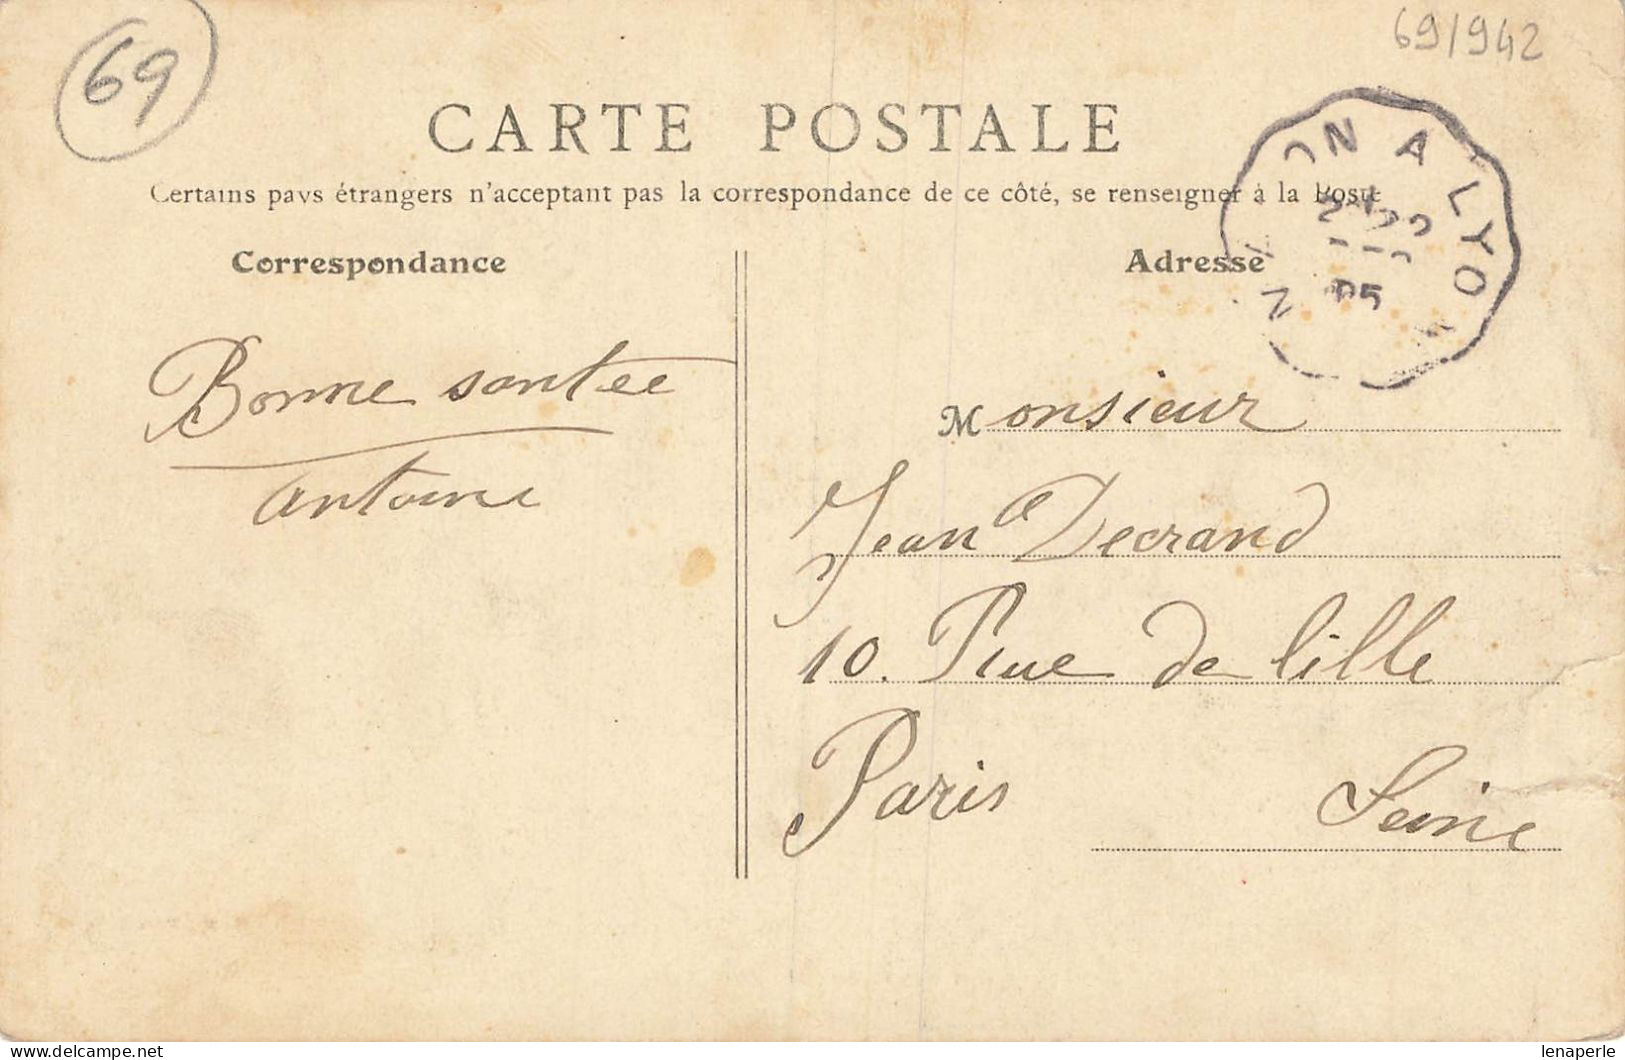 69
69/942
CARTE POSTALE
Certains pays étrangers n'acceptant pas la correspondance de ce côté, se renseigner à la Poste
Correspondance
Adresse
ON A LYON
05
Bonne santee
antoine
Monsieur
Jean Decrand
10. Rue de lille
Paris Seine
lenaperle